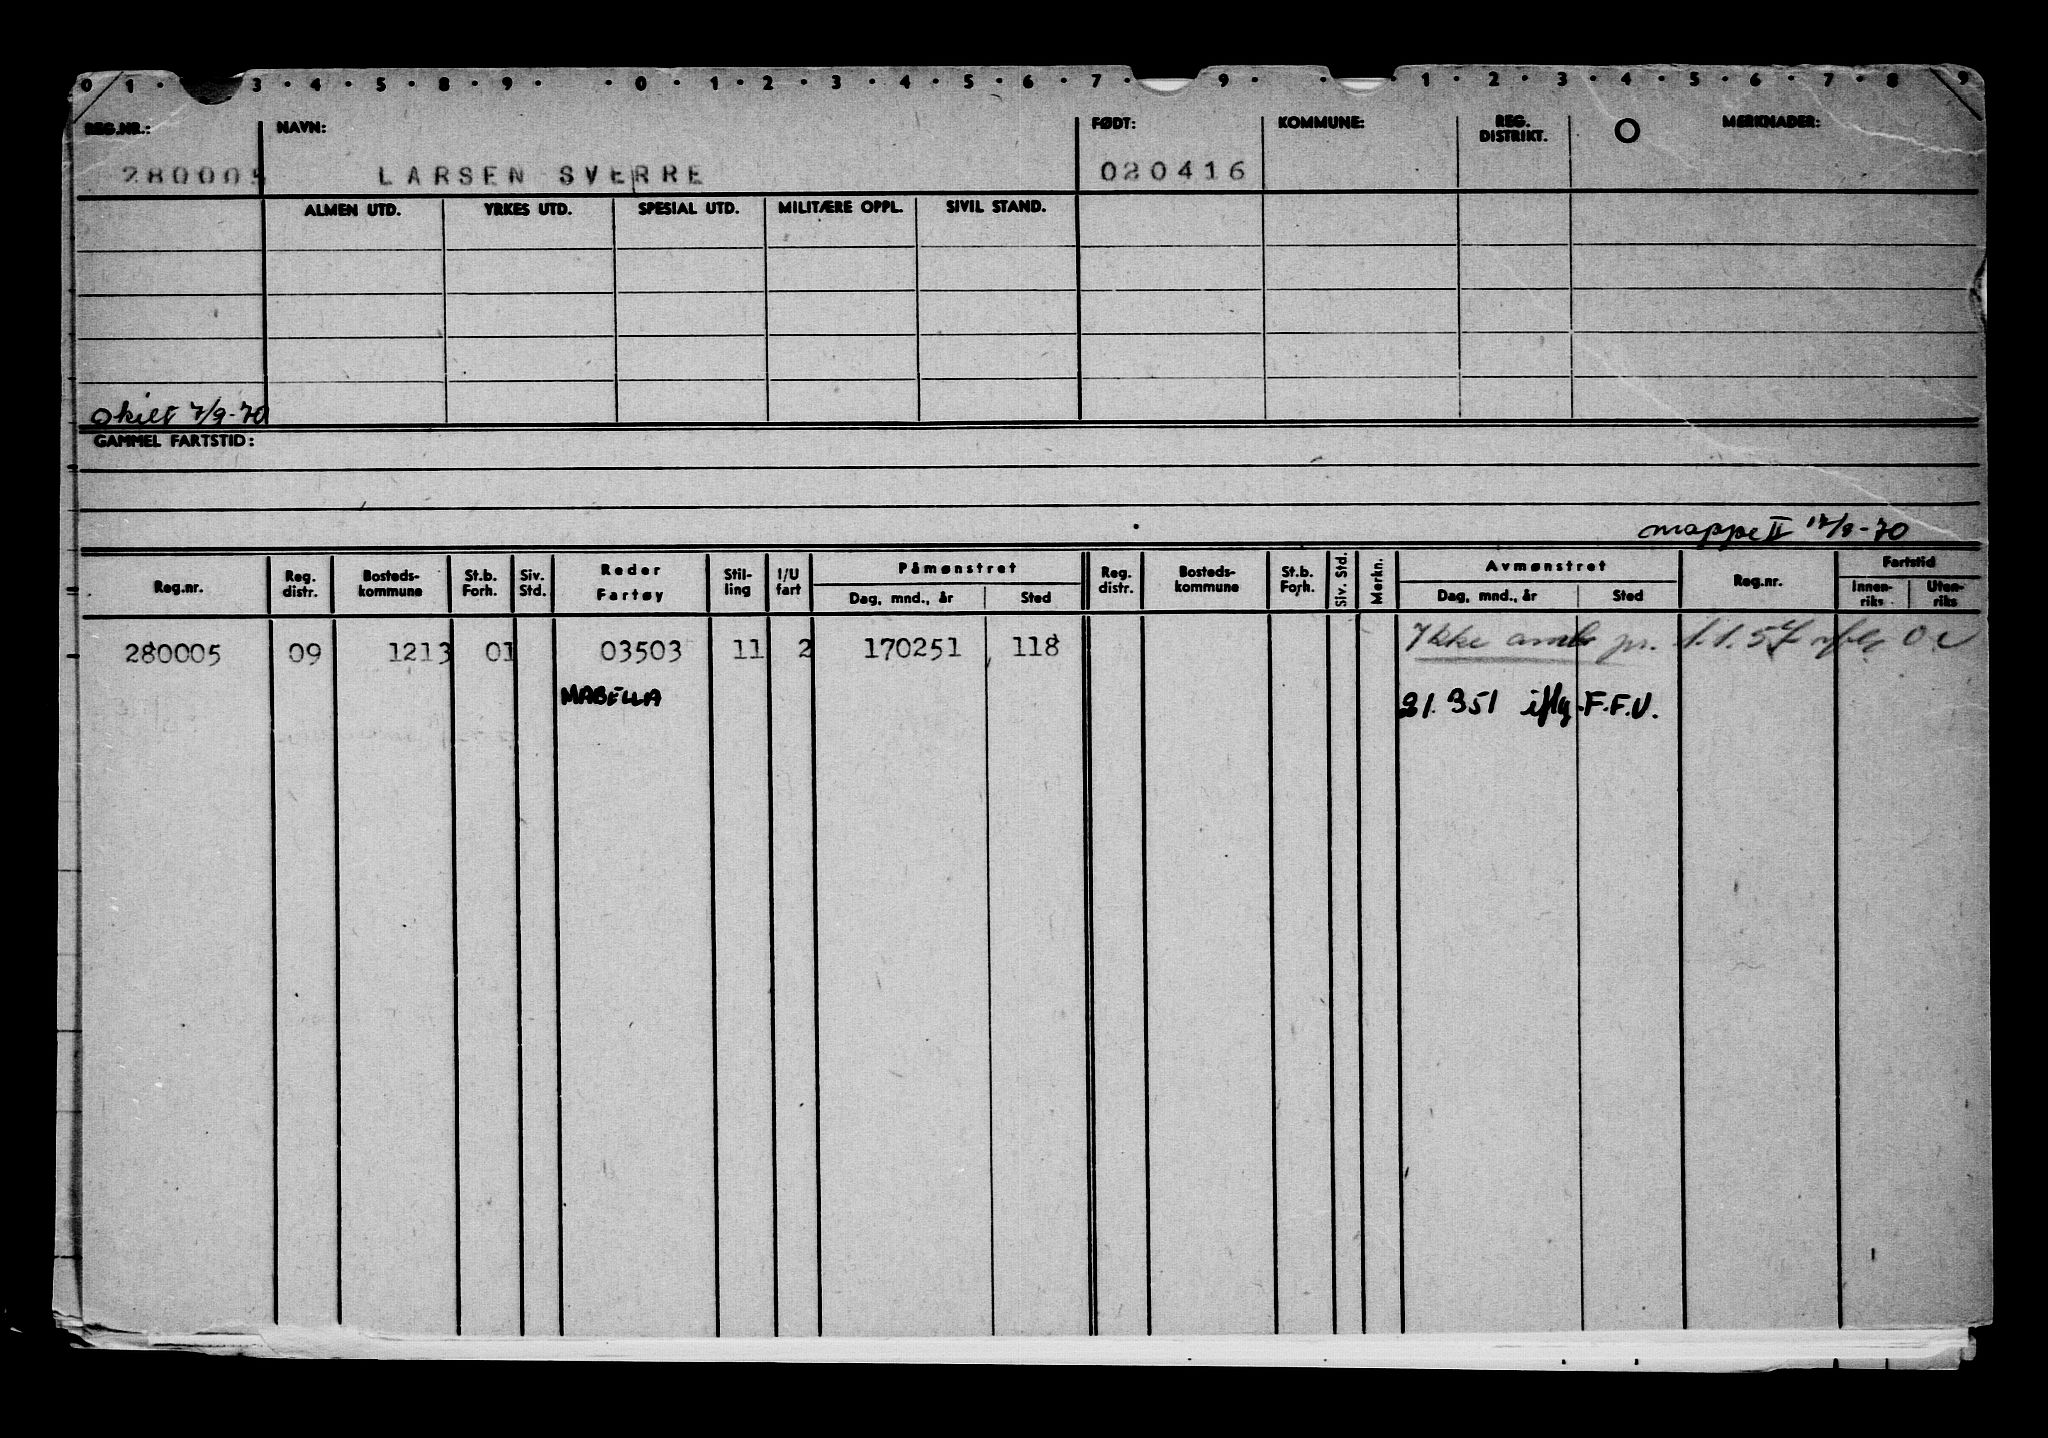 0 1 · 3 · 4 · 5 · 8 · 9 · · 0 · 1 · 2 · 3 · 4 · 5 · 6 · 7 · 9 · · · 1 · 2 · 3 · 4 · 5 · 6 · 7 · 8 9
REG.NR.: NAVN: FØDT: KOMMUNE: REG. DISTRIKT. O MERKNADER:
280005 LARSEN SVERRE 020416
ALMEN UTD. YRKES UTD. SPESIAL UTD. MILITÆRE OPPL. SIVIL STAND.
skilt 7/9-70
GAMMEL FARTSTID:
mappe II 17/9-70
Reg.nr. Reg. distr. Bosteds- kommune St.b. Forh. Siv. Std. Reder Fartøy Stil- ling I/U fart Påmønstret Dag, mnd., år Sted Reg. distr. Bosteds- kommune St.b. Forh. Siv. Std. Merkn. Avmønstret Dag, mnd., år Sted Reg.nr. Fartstid Innen- riks Uten- riks
280005 09 1213 01 03503 11 2 170251 118 Ikke pr. 1.1.57
MABELLA 21.351 iflg. F.F.V.